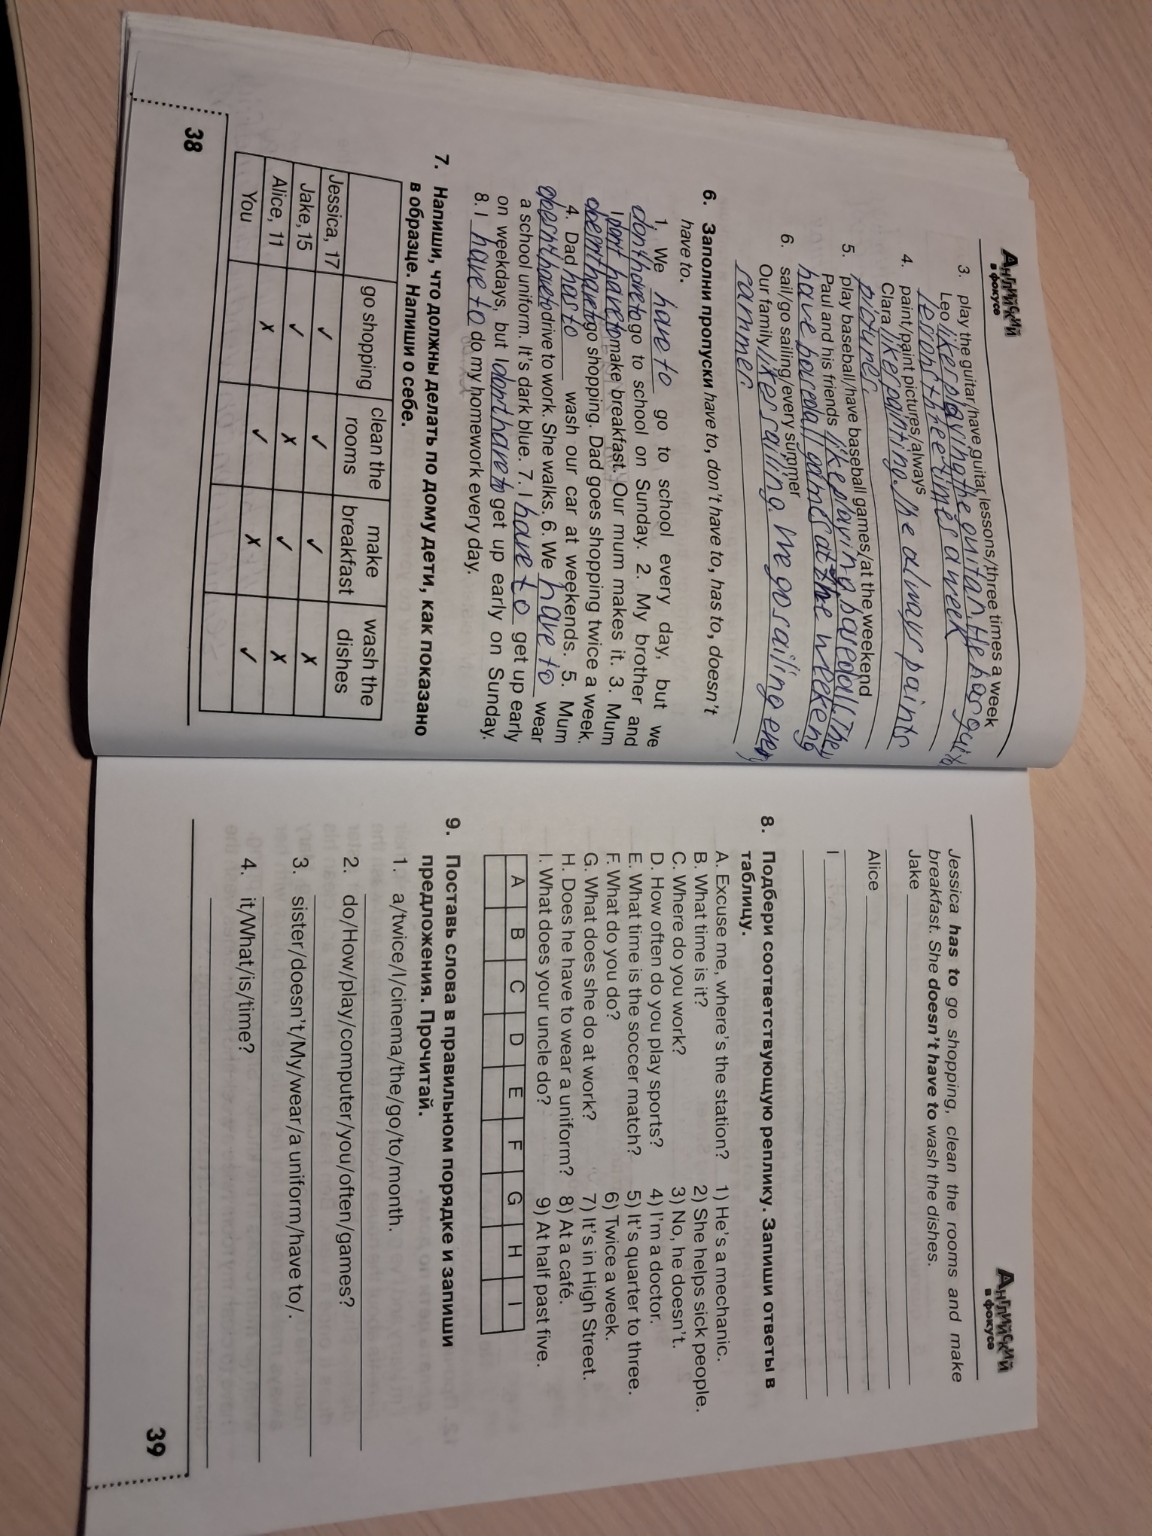 Английский
в фокусе
3. play the guitar/have guitar lessons/three times a week
Leo likes playing the guitar. He has guita
lessons three times a week
4. paint/paint pictures/always
Clara likes painting. She always paints
pictures
5. play baseball/have baseball games/at the weekend
Paul and his friends like playing baseball. They
have baseball games at the weekend
6. sail/go sailing/every summer
Our family likes sailing. We go sailing every
summer
6. Заполни пропуски have to, don't have to, has to, doesn't
have to.
1. We have to go to school every day, but we
don't have to go to school on Sunday. 2. My brother and
I don't have to make breakfast. Our mum makes it. 3. Mum
doesn't have to go shopping. Dad goes shopping twice a week.
4. Dad has to wash our car at weekends. 5. Mum
doesn't have to drive to work. She walks. 6. We have to wear
a school uniform. It's dark blue. 7. I have to get up early
on weekdays, but I don't have to get up early on Sunday.
8. I have to do my homework every day.
7. Напиши, что должны делать по дому дети, как показано
в образце. Напиши о себе.
go shopping clean the rooms make breakfast wash the dishes
Jessica, 17 ✓ ✓ ✓ x
Jake, 15 ✓ x ✓ x
Alice, 11 x ✓ x ✓
You
38
Английский
в фокусе
Jessica has to go shopping, clean the rooms and make
breakfast. She doesn't have to wash the dishes.
Jake
Alice
I
8. Подбери соответствующую реплику. Запиши ответы в
таблицу.
A. Excuse me, where's the station? 1) He's a mechanic.
B. What time is it? 2) She helps sick people.
C. Where do you work? 3) No, he doesn't.
D. How often do you play sports? 4) I'm a doctor.
E. What time is the soccer match? 5) It's quarter to three.
F. What do you do? 6) Twice a week.
G. What does she do at work? 7) It's in High Street.
H. Does he have to wear a uniform? 8) At a café.
I. What does your uncle do? 9) At half past five.
A B C D E F G H I
9. Поставь слова в правильном порядке и запиши
предложения. Прочитай.
1. a/twice/I/cinema/the/go/to/month.
2. do/How/play/computer/you/often/games?
3. sister/doesn't/My/wear/a uniform/have to/.
4. it/What/is/time?
39